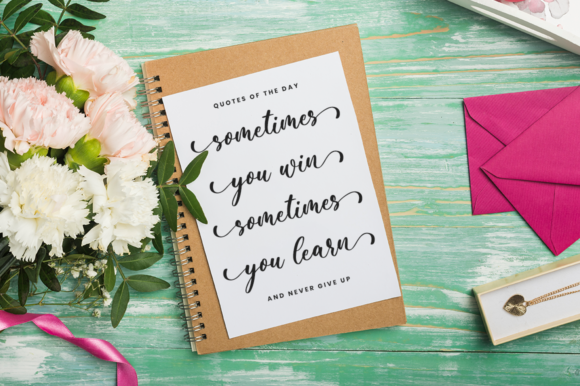 QUOTES OF THE DAY
sometimes
you win
sometimes
you learn
AND NEVER GIVE UP